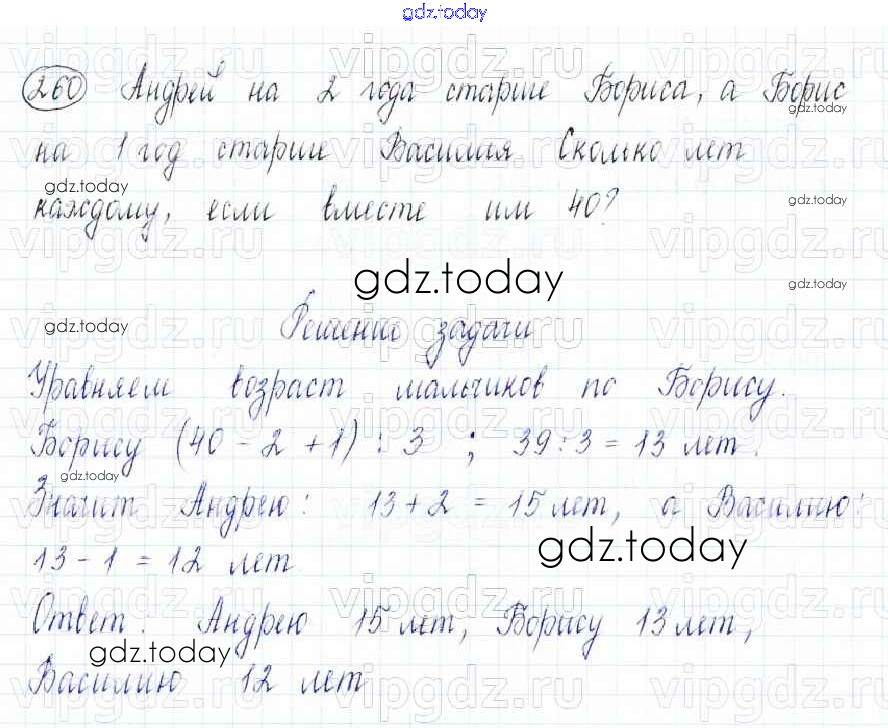 gdz.today
260 Андрей на 2 года старше Бориса, а Борис
gdz.today
на 1 год старше Василия Сколько лет
gdz.today
каждому, если вместе им 40?
gdz.today
gdz.today
gdz.today
gdz.today
Решение задачи
Уравняем возраст мальчиков по Борису.
Борису (40 - 2 + 1) : 3 ; 39 : 3 = 13 лет.
gdz.today
Значит Андрею: 13 + 2 = 15 лет, а Василию:
13 - 1 = 12 лет
gdz.today
Ответ: Андрею 15 лет, Борису 13 лет,
gdz.today
Василию 12 лет
vipgdz.ru